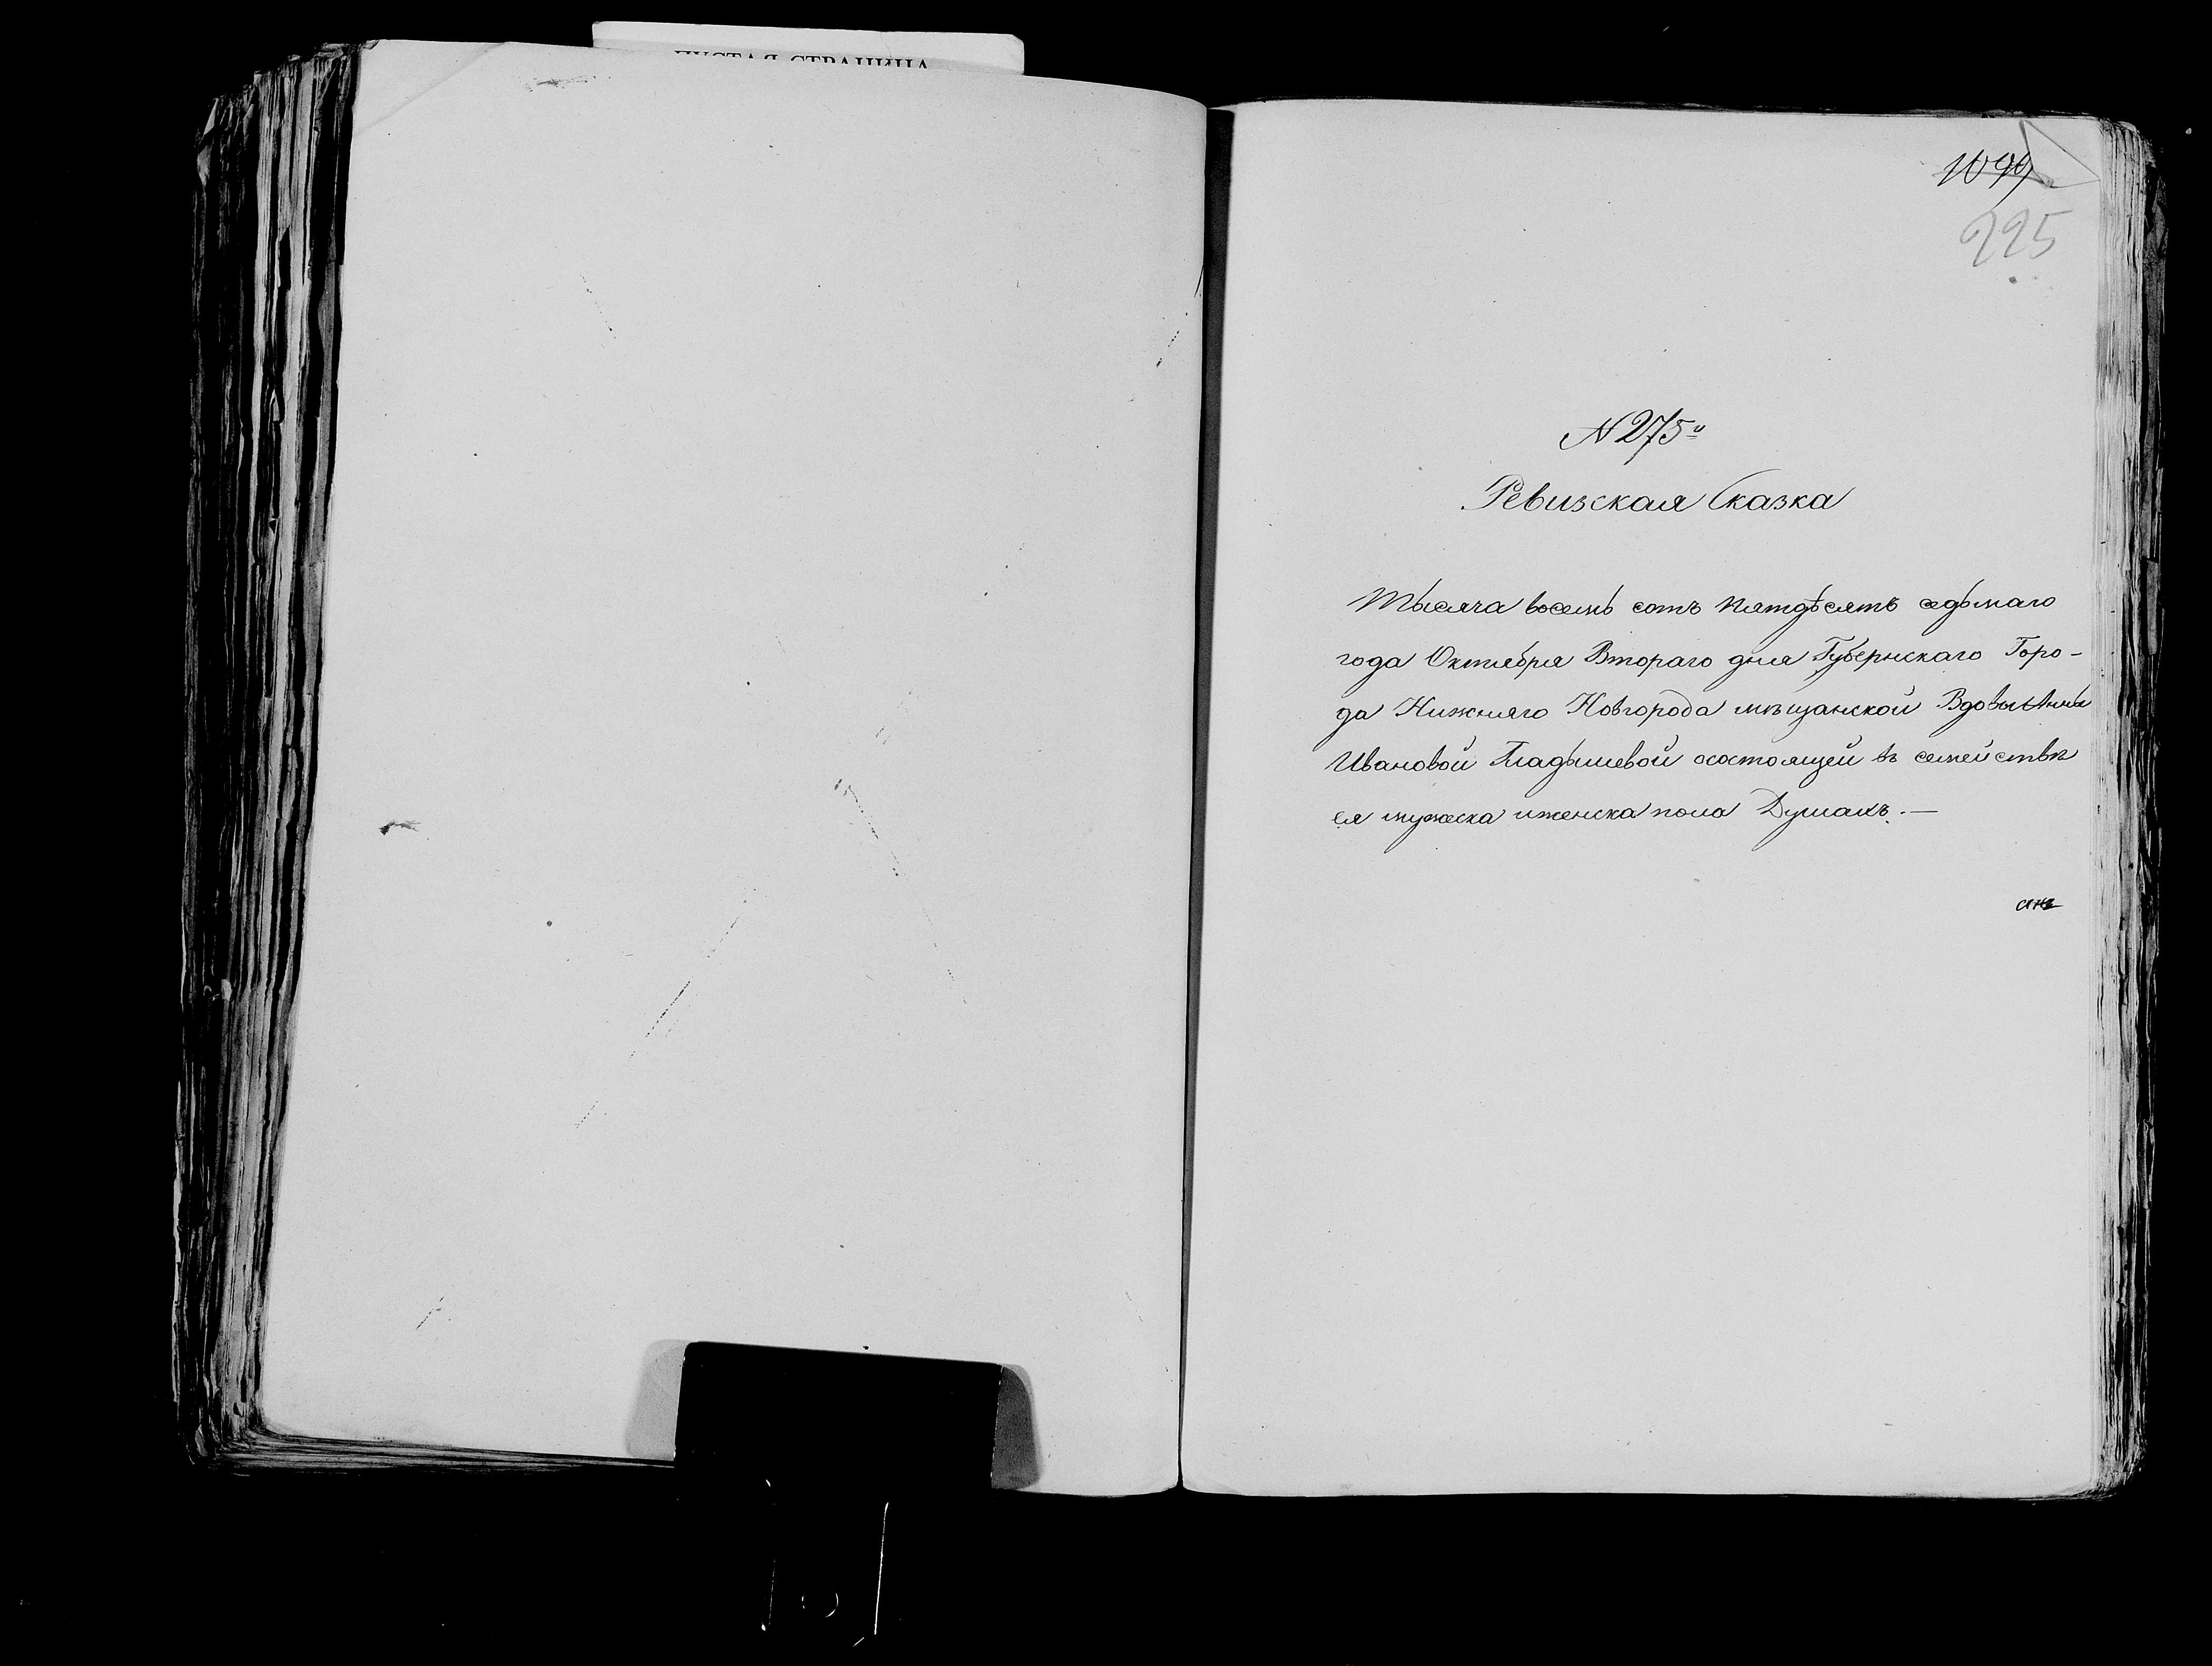 225
N 275й
Ревизская Сказка
Тысяча восемь сотъ пятдесятъ седьмаго
года Октября Втораго дня Губернскаго Горо-
да Нижняго Новгорода мѣщанской Вдовы Анны
Ивановой Гладышевой осостоящей въ семействѣ
ея мужеска иженска пола Душахъ. —